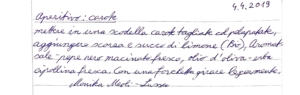 4.4.2019
Aperitivo: carote
mettere in una scodella carote tagliate ed pelapatate,
aggiungere scorza e succo di limone (Bio), Aromat
sale pepe nero macinato fresco, olio d'oliva - erba
cipollina fresca. Con una forchetta girare leggermente.
Monika